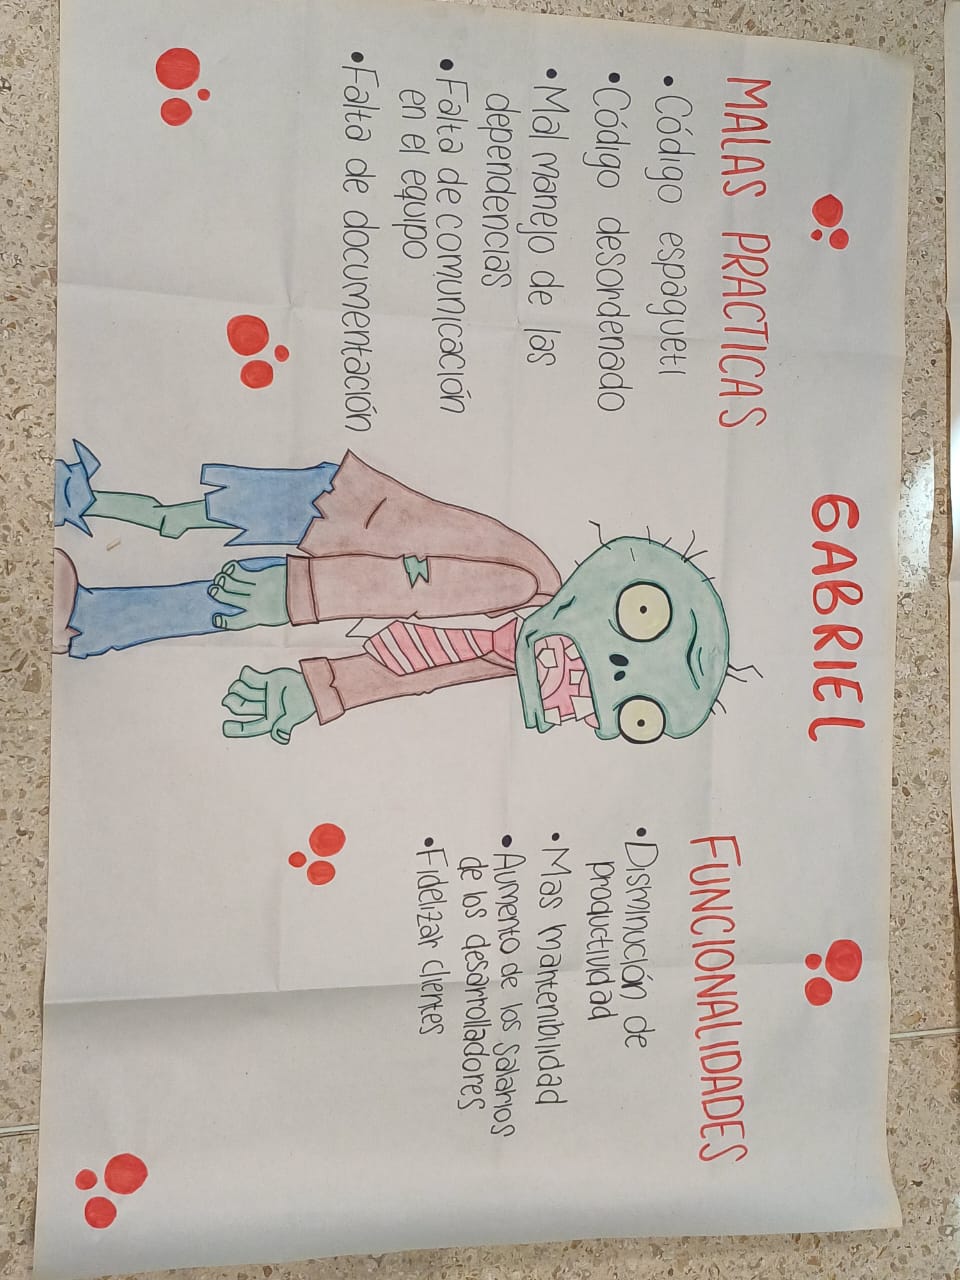 GABRIEL
MALAS PRACTICAS
• Código espagueti
• Código desordenado
• Mal manejo de las
dependencias
• Falta de comunicación
en el equipo
• Falta de documentación
FUNCIONALIDADES
• Disminución de
productividad
• Mas mantenibilidad
• Aumento de los salarios
de los desarrolladores
• Fidelizar clientes